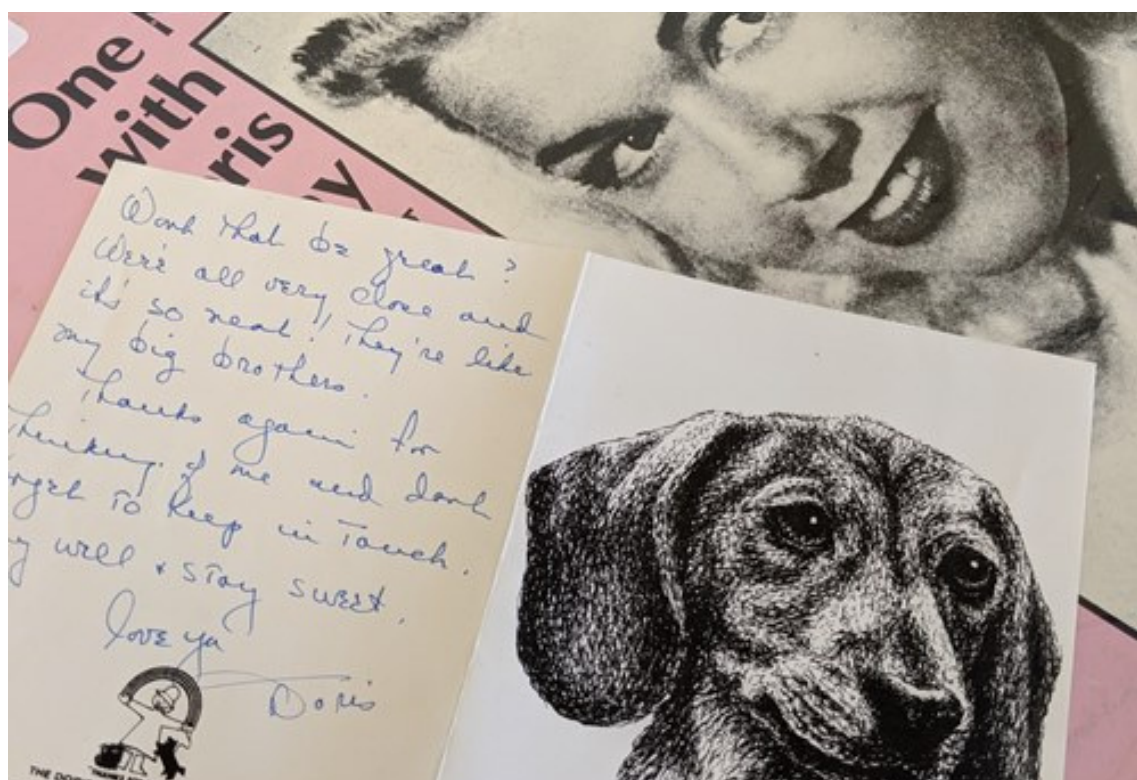 One
with
ris
y
Wont that be great?
We're all very close and
it's so neat! They're like
my big brothers.
Thanks again for
Thinking of me and dont
rget To keep in Touch.
y well & stay sweet.
love ya
Doris
THE DORIS